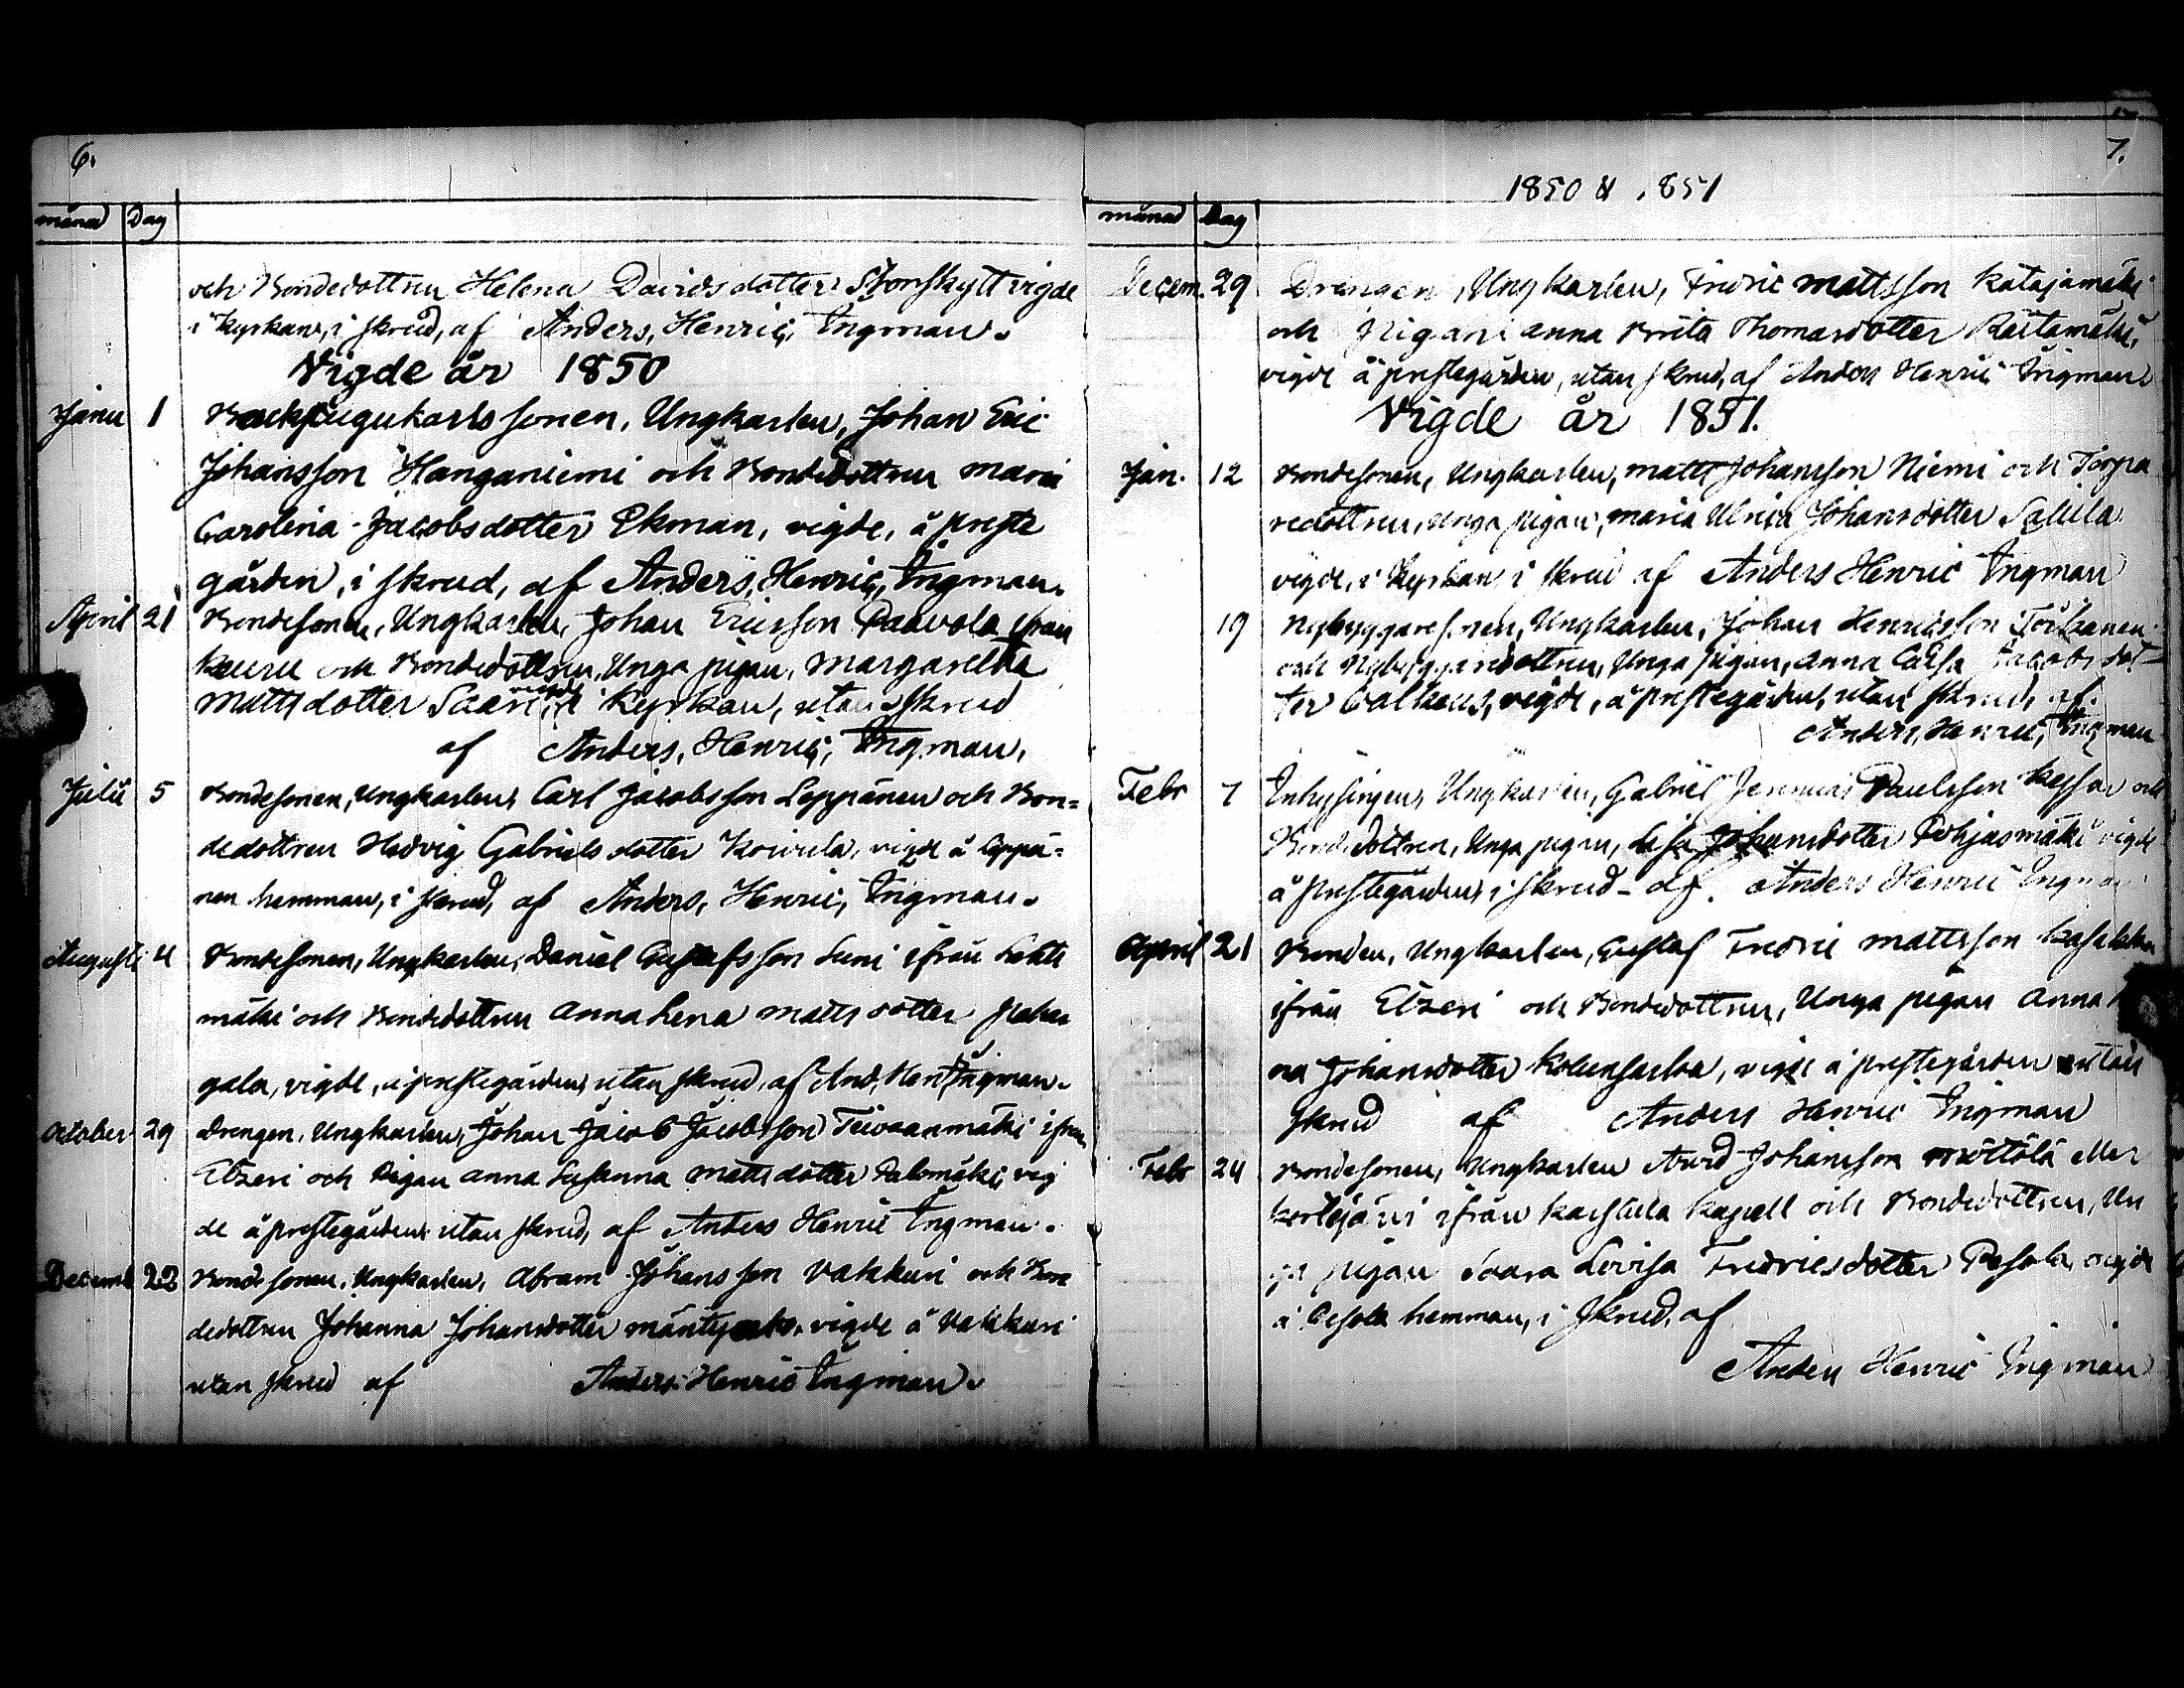 6.
månad Dag
och Bondedottren Helena Davidsdotter Storskytt vigde
i kyrkan, i skrud, af Anders, Henric, Ingman.
Vigde år 1850
Janu 1 Johan Eric
Johansson Hanganiemi och Bondedottren Maria
Carolina Jacobsdotter Ekman, vigde, å preste
gården, i skrud, af Anders, Henric, Ingman.
April 21 Bondesonen, Ungkarlen, Johan Ericsson Paavola ifrån
Keuru och Bondedottren, Unga pigan, Margaretha
Mattsdotter Saari, vigde i Kyrkan, utan skrud
af Anders, Henric, Ingman.
Julii 5 Bondesonen, Ungkarlen, Carl Jacobsson Leppänen och Bon=
dedottren Hedvig Gabrielsdotter Koivula, vigde å Leppä=
nen hemman, i skrud, af Anders, Henric, Ingman.
Augusti 4 Bondesonen, Ungkarlen, Daniel Gustafsson ifrån Lehti
mäki och Bondedottren Anna Lena Mattsdotter
gala, vigde, å prestegården, utan skrud, af And. Hen. Ingman.
October 29 Drengen, Ungkarlen, Johan Jacob Jacobsson Teivaanmäki ifrån
Etseri och Pigan Anna Susanna Mattsdotter Palomäki, vig
de å prestegården utan skrud, af Anders Henric Ingman.
Decemb 22 Bondesonen, Ungkarlen, Abram Johansson Vakkuri och Bon
dedottren Johanna Johansdotter vigde å Vakkuri
utan skrud af Anders Henric Ingman.
7.
1850 & 1851
månad Dag
Decem. 29 Drengen, Ungkarlen, Fredric Mattsson Katajamäki
och Pigan Anna Brita Thomasdotter
vigde å prestegården, utan skrud, af Anders Henric Ingman
Vigde år 1851.
Jan. 12 Bondesonen, Ungkarlen, Matts Johansson Niemi och Torpa
redottren, Unga pigan, Maria Ulrica Johansdotter
vigde, i Kyrkan i skrud af Anders Henric Ingman
19 Nybyggaresonen, Ungkarlen, Johan Henricsson
och Nybyggaredottren, Unga pigan, Anna Caisa Jacobsdot=
ter vigde, å prestegården, utan skrud, af
Anders, Henric, Ingman
Febr 7 Inhysingen, Ungkarlen, Gabriel Jeremias Paulsson och
Bondedottren, Unga pigan, Caisa Johansdotter Pohjasmäki vigde
å prestegården, i skrud af. Anders Henric Ingman
April 21 Bonden, Ungkarlen, Gustaf Fredric Mattsson
ifrån Etseri och Bondedottren, Unga pigan Anna
na Johansdotter vigde å prestegården utan
skrud af Anders Henric Ingman
Febr 24 Bondesonen, Ungkarlen Arvid Johansson eller
ifrån Karstula Kapell och Bondedottren, Un
ga pigan Saara Lovisa Fredricsdotter Pesola, vigde
å Pesola hemman, i skrud, af
Anders Henric Ingman